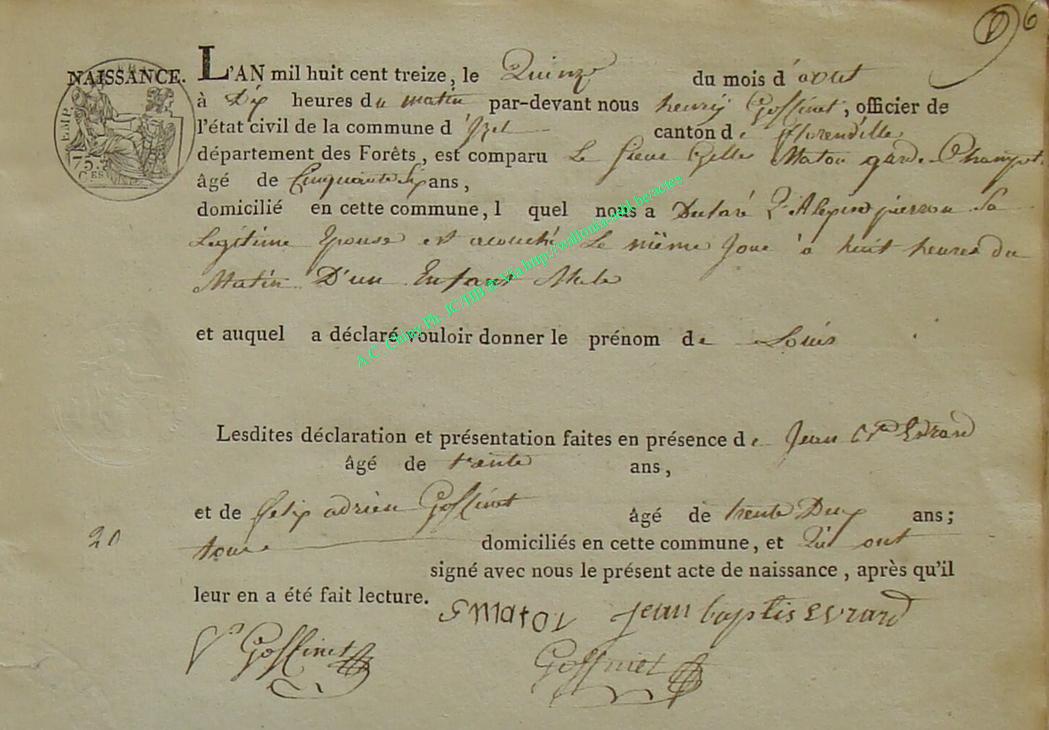 6
NAISSANCE. L'AN mil huit cent treize, le Quinze du mois d'aout
à Dix heures du matin par-devant nous henry Goffinet, officier de
l'état civil de la commune d'Izel canton de florenville
département des Forêts, est comparu Le sieur Gille Maton garde Champet.
âgé de Cinquante Six ans,
domicilié en cette commune, lquel nous a Declaré Sa
Legitime Epouse est acouché Le même Jour à huit heures du
Matin D'un Enfant Male
et auquel a déclaré vouloir donner le prénom de Louis
Lesdites déclaration et présentation faites en présence de Jean Bte Evrard
âgé de trente ans,
et de felix adrien Goffinet âgé de trente Deux ans;
20
tous domiciliés en cette commune, et Qui ont
signé avec nous le présent acte de naissance, après qu'il
leur en a été fait lecture.
Maton jean baptis evrard
Goffinet Goffinet